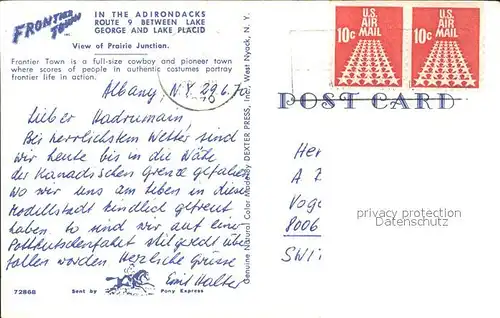 FRONTIER TOWN
IN THE ADIRONDACKS
ROUTE 9 BETWEEN LAKE
GEORGE AND LAKE PLACID
View of Prairie Junction.
Frontier Town is a full-size cowboy and pioneer town
where scores of people in authentic costumes portray
frontier life in action.
Albany, N.Y. 29.6.70
Lieber
Bei herrlichstem Wetter sind
wir heute bis in die Nähe
der Kanadischen Grenze gefahren
wo wir uns am Leben in dieser
Modellstadt kindlich gefreut
haben. So sind wir auf einer
Postkutschenfahrt stilgerecht über-
fallen worden Herzliche Grüsse
Emil
72868
Sent by Pony Express
Genuine Natural Color Made by DEXTER PRESS, Inc. West Nyack, N. Y.
U.S. AIR MAIL 10c
U.S. AIR MAIL 10c
POST CARD
Her
A
Voge
8006
SWI
privacy protection
oldthing.com